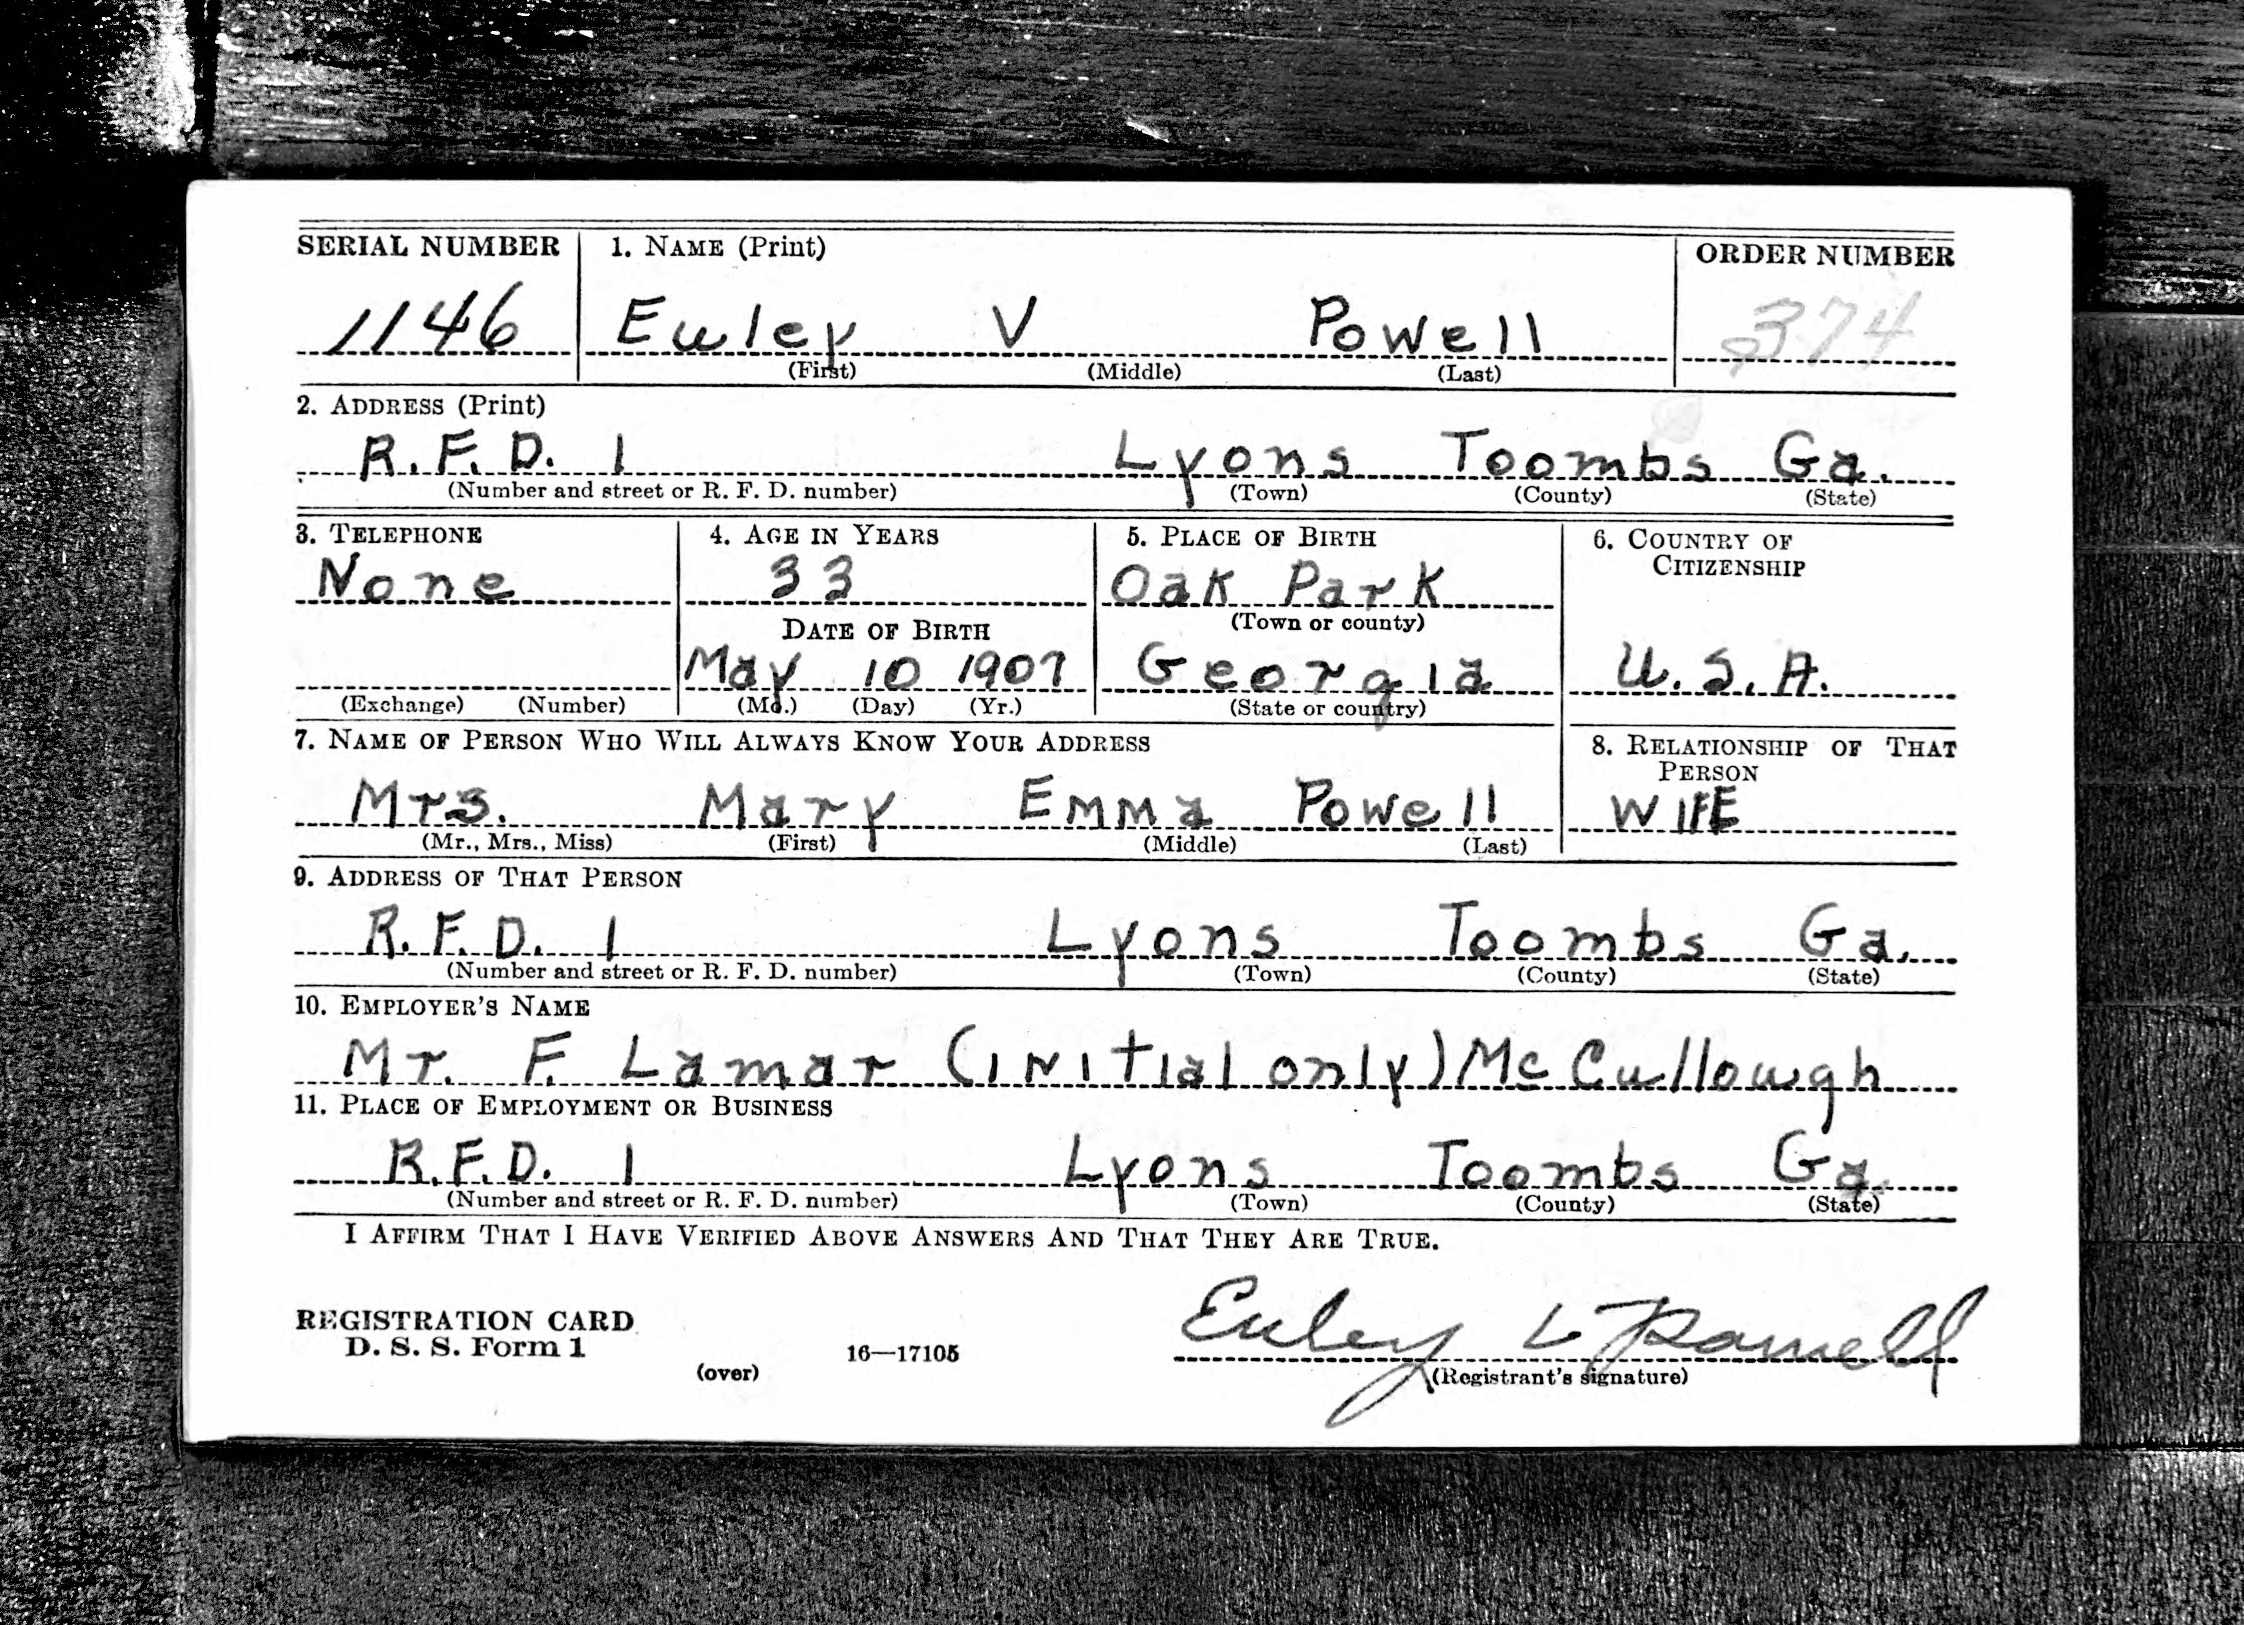 SERIAL NUMBER 1. NAME (Print) ORDER NUMBER
1146 Euley V Powell 374
(First) (Middle) (Last)
2. ADDRESS (Print)
R.F.D. 1 Lyons Toombs Ga.
(Number and street or R. F. D. number) (Town) (County) (State)
3. TELEPHONE 4. AGE IN YEARS 5. PLACE OF BIRTH 6. COUNTRY OF
CITIZENSHIP
None 33 Oak Park
DATE OF BIRTH (Town or county)
May 10 1907 Georgia U.S.A.
(Exchange) (Number) (Mo.) (Day) (Yr.) (State or country)
7. NAME OF PERSON WHO WILL ALWAYS KNOW YOUR ADDRESS 8. RELATIONSHIP OF THAT
PERSON
Mrs. Mary Emma Powell WIFE
(Mr., Mrs., Miss) (First) (Middle) (Last)
9. ADDRESS OF THAT PERSON
R.F.D. 1 Lyons Toombs Ga.
(Number and street or R. F. D. number) (Town) (County) (State)
10. EMPLOYER'S NAME
Mr. F. Lamar (initial only) McCullough
11. PLACE OF EMPLOYMENT OR BUSINESS
R.F.D. 1 Lyons Toombs Ga.
(Number and street or R. F. D. number) (Town) (County) (State)
I AFFIRM THAT I HAVE VERIFIED ABOVE ANSWERS AND THAT THEY ARE TRUE.
Euley V Powell
REGISTRATION CARD
D. S. S. Form 1 16—17105
(over) (Registrant's signature)